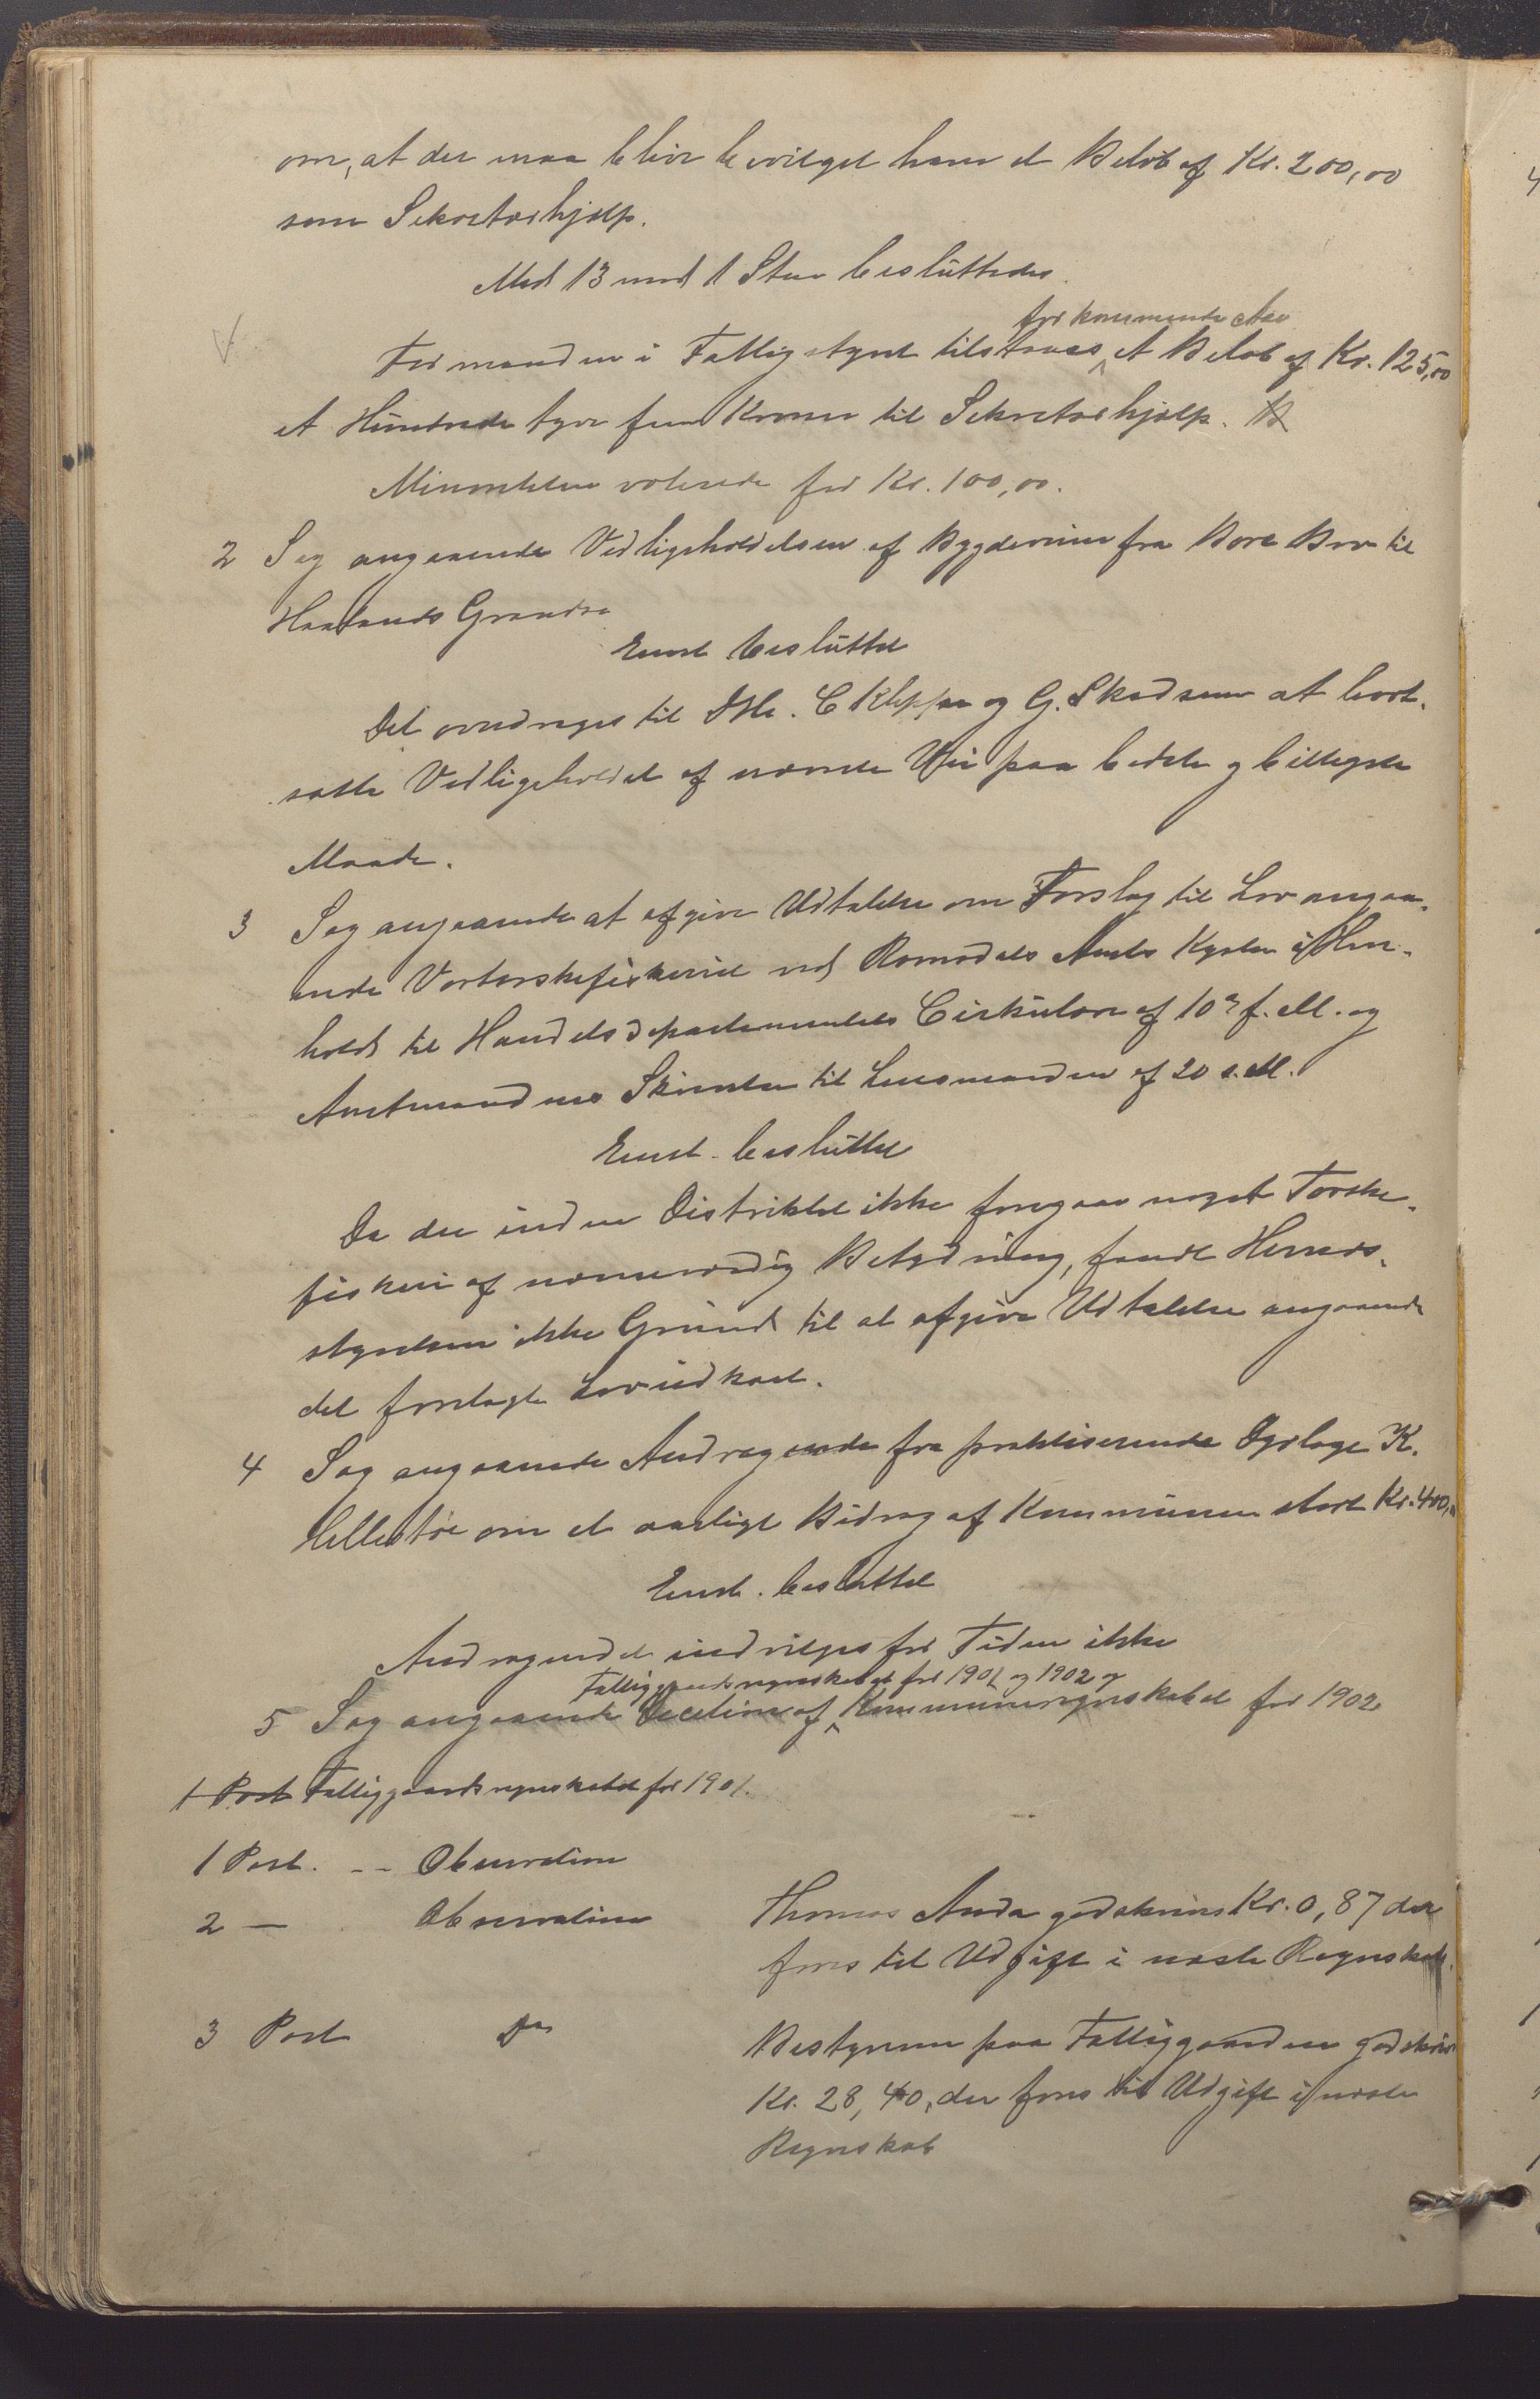 om, at der maa blive bevilget ham et Beløb af Kr. 200,00
som Sekretærhjælp.
Med 13 mod 1 Stem besluttedes.
for kommende Aar
Formanden i Fattigstyret tilstaaes et Beløb af Kr. 125,00
et Hundrede tyve fem Kroner til Sekretærhjælp.
Minoriteten voterede for Kr. 100,00.
2 Sag angaaende Vedligeholdelsen af Bygdeveien fra Bore Bro til
Haalands Grændse
Enst besluttet
Det overdrages til Ole. C Kleppe og G. Skadsem at bort-
sætte Vedligeholdet af nævnte Vei paa bedste og billigste
Maade.
3 Sag angaaende at afgive Udtalelse om Forslag til Lov angaa-
ende Vortorskefiskeriet ved Romsdals Amts Kyster i Hen-
hold til Handelsdepartementets Cirkulære af 10de f. M. og
Amtmandens Skrivelse til Lensmanden af 20 s. M.
Enst. besluttet
Da der inden Distriktet ikke foregaar noget Torske-
fiskeri af nævneværdig Betydning, fandt Herreds-
styrelsen ikke Grund til at afgive Udtalelse angaaende
det forelagte Lovudkast.
4 Sag angaaende Andragende fra praktiserende Dyrlæge K.
Hellestøe om et aarligt Bidrag af Kommunen stort Kr. 400,00
Enst. besluttet
Andragendet indvilges for Tiden ikke
Fattiggaardsregnskabet for 1901 og 1902 og
5 Sag angaaende Decision af Kommuneregnskabet for 1902
1 Post Fattiggaardsregnskabet for 1901.
1 Post. -- Observation
2 — Observation Thomas Anda godskrives Kr. 0,87 der
føres til Udgift i næste Regnskab.
3 Post Do Bestyreren paa Fattiggaarden godskriv
Kr. 28,40, der føres til Udgift i næste
Regnskab